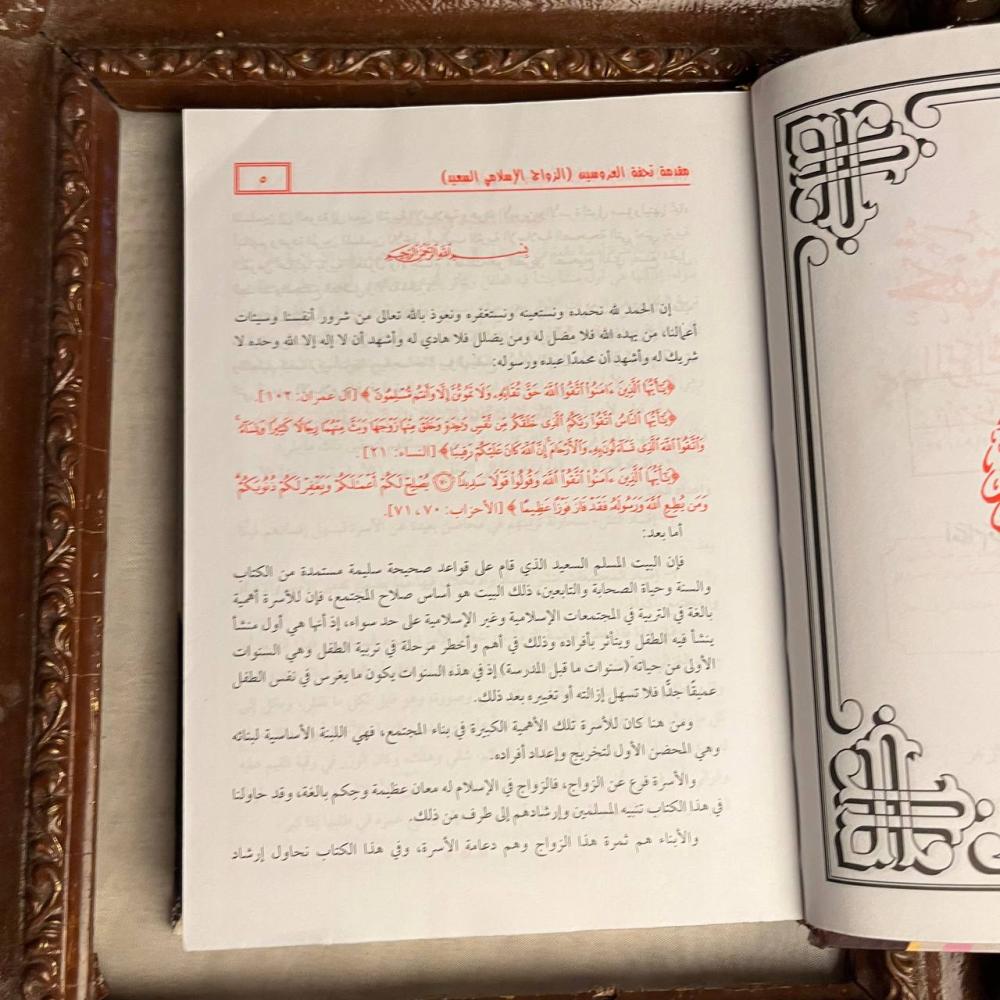 مقدمة تحفة العروسين (الزواج الإسلامي السعيد)
٥
بسم الله الرحمن الرحيم
إن الحمد لله نحمده ونستعينه ونستغفره ونعوذ بالله تعالى من شرور أنفسنا وسيئات
أعمالنا، من يهده الله فلا مضل له ومن يضلل فلا هادي له وأشهد أن لا إله إلا الله وحده لا
شريك له وأشهد أن محمدًا عبده ورسوله:
﴿يَٰٓأَيُّهَا ٱلَّذِينَ ءَامَنُوا۟ ٱتَّقُوا۟ ٱللَّهَ حَقَّ تُقَاتِهِۦ وَلَا تَمُوتُنَّ إِلَّا وَأَنتُم مُّسْلِمُونَ﴾ [آل عمران: ١٠٢].
﴿يَٰٓأَيُّهَا ٱلنَّاسُ ٱتَّقُوا۟ رَبَّكُمُ ٱلَّذِى خَلَقَكُم مِّن نَّفْسٍ وَٰحِدَةٍ وَخَلَقَ مِنْهَا زَوْجَهَا وَبَثَّ مِنْهُمَا رِجَالًا كَثِيرًا وَنِسَآءً ۚ
وَٱتَّقُوا۟ ٱللَّهَ ٱلَّذِى تَسَآءَلُونَ بِهِۦ وَٱلْأَرْحَامَ ۚ إِنَّ ٱللَّهَ كَانَ عَلَيْكُمْ رَقِيبًا﴾ [النساء: ٢١].
﴿يَٰٓأَيُّهَا ٱلَّذِينَ ءَامَنُوا۟ ٱتَّقُوا۟ ٱللَّهَ وَقُولُوا۟ قَوْلًا سَدِيدًا ۝٧٠ يُصْلِحْ لَكُمْ أَعْمَٰلَكُمْ وَيَغْفِرْ لَكُمْ ذُنُوبَكُمْ ۗ
وَمَن يُطِعِ ٱللَّهَ وَرَسُولَهُۥ فَقَدْ فَازَ فَوْزًا عَظِيمًا﴾ [الأحزاب: ٧٠، ٧١].
أما بعد:
فإن البيت المسلم السعيد الذي قام على قواعد صحيحة سليمة مستمدة من الكتاب
والسنة وحياة الصحابة والتابعين، ذلك البيت هو أساس صلاح المجتمع، فإن للأسرة أهمية
بالغة في التربية في المجتمعات الإسلامية وغير الإسلامية على حد سواء، إذ أنها هي أول منشأ
ينشأ فيه الطفل ويتأثر بأفراده وذلك في أهم وأخطر مرحلة في تربية الطفل وهي السنوات
الأولى من حياته (سنوات ما قبل المدرسة) إذ في هذه السنوات يكون ما يغرس في نفس الطفل
عميقًا جدًّا فلا تسهل إزالته أو تغييره بعد ذلك.
ومن هنا كان للأسرة تلك الأهمية الكبيرة في بناء المجتمع، فهي اللبنة الأساسية لبنائه
وهي المحضن الأول لتخريج وإعداد أفراده.
والأسرة فرع عن الزواج، فالزواج في الإسلام له معان عظيمة وحِكم بالغة، وقد حاولنا
في هذا الكتاب تنبيه المسلمين وإرشادهم إلى طرف من ذلك.
والأبناء هم ثمرة هذا الزواج وهم دعامة الأسرة، وفي هذا الكتاب نحاول إرشاد